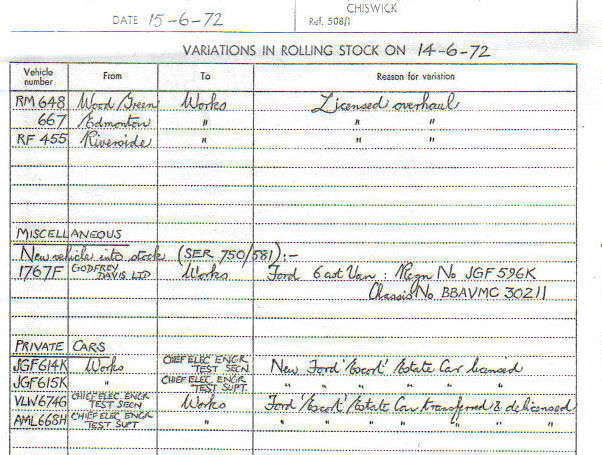 CHISWICK
DATE 15-6-72 Ref. 508/1
VARIATIONS IN ROLLING STOCK ON 14-6-72
Vehicle number From To Reason for variation
RM 648 Wood Green Works Licensed overhaul
667 Edmonton " " "
RF 455 Riverside " " "
MISCELLANEOUS
New vehicle into stock (SER 750/581) :-
1767F GODFREY DAVIS LTD Works Ford 6 cwt Van : Regn No JGF 596K
Chassis No BBAVMC 30211
PRIVATE CARS
JGF614K Works CHIEF ELEC ENGR TEST SECN New Ford 'Escort' Estate Car licensed
JGF615K " CHIEF ELEC ENGR TEST SUPT " " " " "
VLW674G CHIEF ELEC ENGR TEST SECN Works Ford 'Escort' Estate Car transferred & delicensed
AML668H CHIEF ELEC ENGR TEST SUPT " " " " " " "